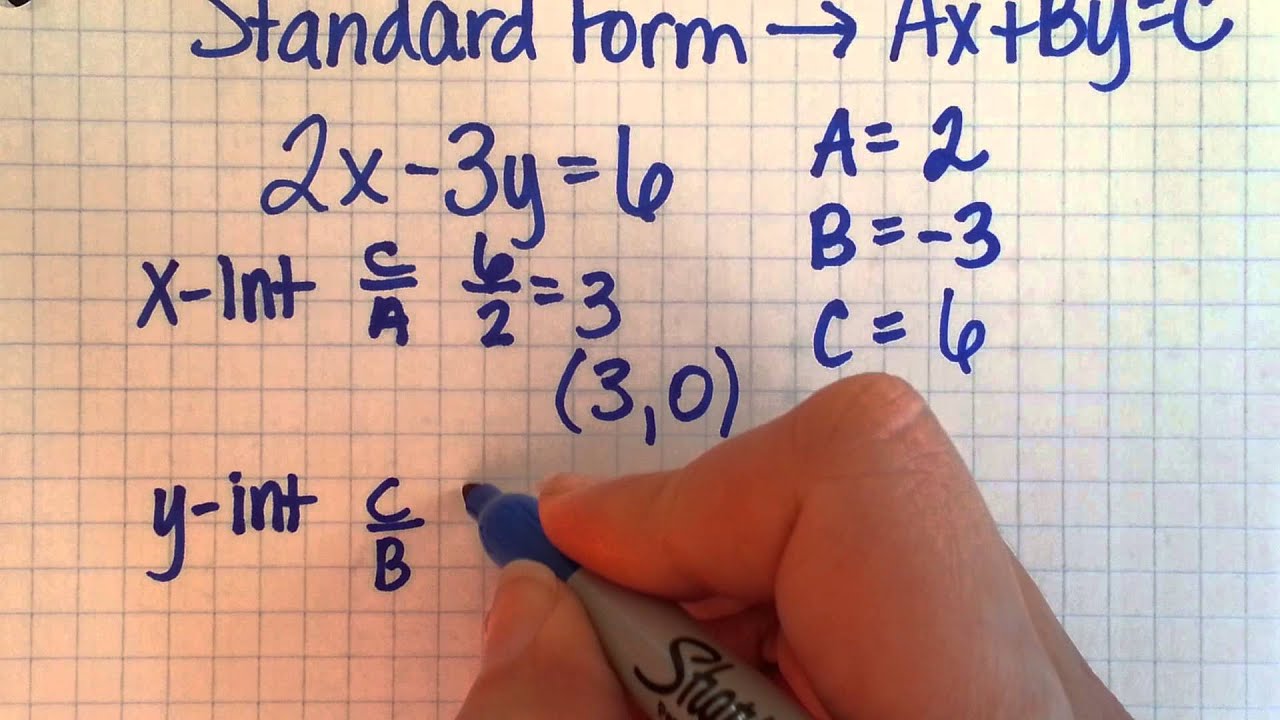 Standard form → Ax+By=C
2x-3y=6
A=2
B=-3
C=6
x-Int C/A 6/2=3
(3,0)
y-int C/B
Sharpie